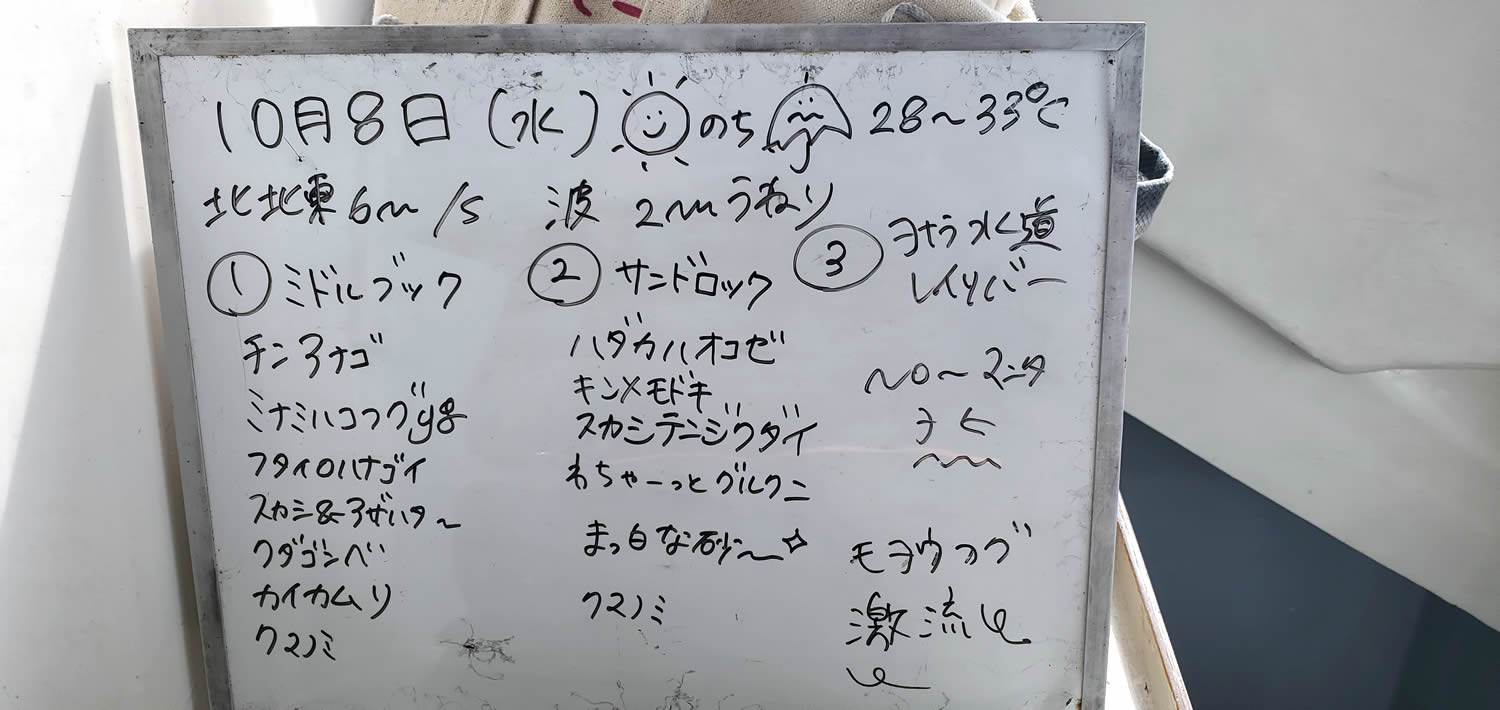 10月8日(水) のち 28~33℃
北北東6m/s 波 2mうねり
① ミドルブック
チンアナゴ
ミナミハコフグyg
フタイロハナゴイ
スカシ&アザハタ~
クダゴンベ
カイカムリ
クマノミ
② サンドロック
ハダカハオコゼ
キンメモドキ
スカシテンジクダイ
わちゃーっとグルクン
まっ白な砂~
クマノミ
③ ヨナラ水道
~マンタ
モヨウフグ
激流